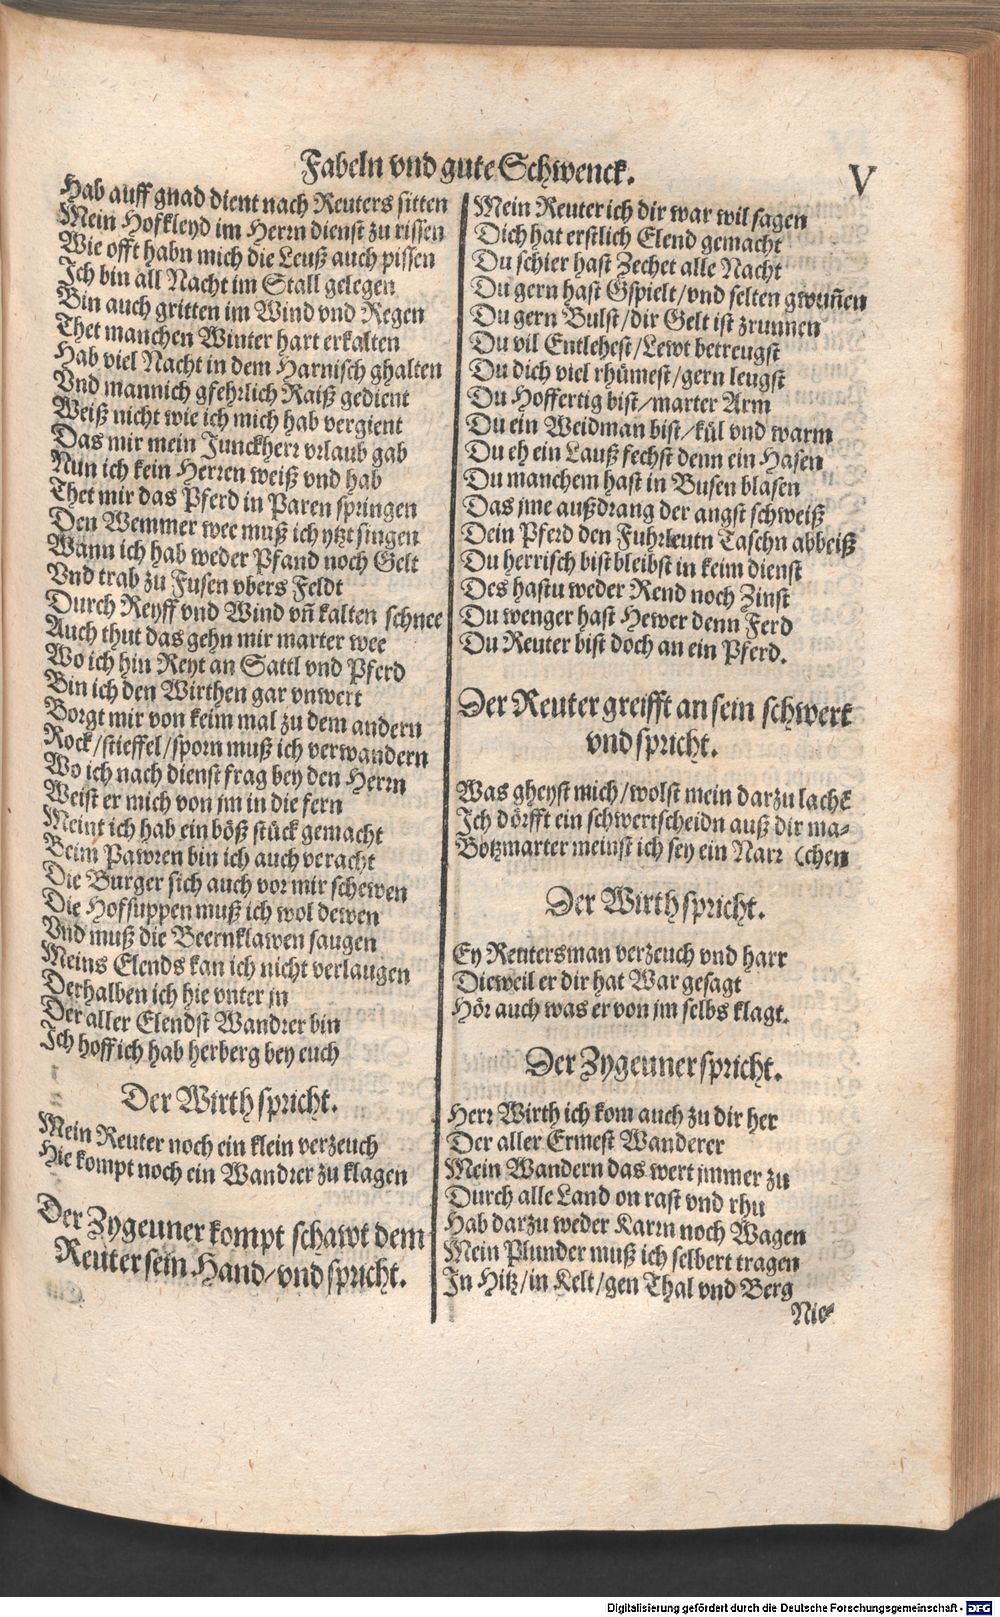 Fabeln vnd gute Schwenck.
V
Hab auff gnad dient nach Reuters sitten
Mein Hofkleyd im Herrn dienst zu rissen
Wie offt habn mich die Leuß auch pissen
Ich bin all Nacht im Stall gelegen
Bin auch gritten im Wind vnd Regen
Thet manchen Winter hart erkalten
Hab viel Nacht in dem Harnisch ghalten
Vnd mannich gfehrlich Raiß gedient
Weiß nicht wie ich mich hab vergient
Das mir mein Junckherr vrlaub gab
Nun ich kein Herren weiß vnd hab
Thet mir das Pferd in Paren springen
Den Wemmer wee muß ich ytzt singen
Wann ich hab weder Pfand noch Gelt
Vnd trab zu Fusen vbers Feldt
Durch Reyff vnd Wind vñ kalten schnee
Auch thut das gehn mir marter wee
Wo ich hin Reyt an Sattl vnd Pferd
Bin ich den Wirthen gar vnwert
Borgt mir von keim mal zu dem andern
Rock/stieffel/sporn muß ich verwandern
Wo ich nach dienst frag bey den Herrn
Weist er mich von jm in die fern
Meint ich hab ein böß stück gemacht
Beim Pawren bin ich auch veracht
Die Burger sich auch vor mir schewen
Die Hofsuppen muß ich wol dewen
Vnd muß die Beernklawen saugen
Meins Elends kan ich nicht verlaugen
Derhalben ich hie vnter jn
Der aller Elendst Wandrer bin
Ich hoff ich hab herberg bey euch
Der Wirth spricht.
Mein Reuter noch ein klein verzeuch
Hie kompt noch ein Wandrer zu klagen
Der Zygeuner kompt schawt dem
Reuter sein Hand/vnd spricht.
Mein Reuter ich dir war wil sagen
Dich hat erstlich Elend gemacht
Du schier hast Zechet alle Nacht
Du gern hast Gspielt/vnd selten gwuñen
Du gern Bulst/dir Gelt ist zrunnen
Du vil Entlehest/Lewt betreugst
Du dich viel rhümest/gern leugst
Du Hoffertig bist/marter Arm
Du ein Weidman bist/kül vnd warm
Du eh ein Lauß fechst denn ein Hasen
Du manchem hast in Busen blasen
Das jme außdrang der angst schweiß
Dein Pferd den Fuhrleutn Taschn abbeiß
Du herrisch bist bleibst in keim dienst
Des hastu weder Rend noch Zinst
Du wenger hast Hewer denn Ferd
Du Reuter bist doch an ein Pferd.
Der Reuter greifft an sein schwert
vnd spricht.
Was gheyst mich/wolst mein darzu lachẽ
Ich dörfft ein schwertscheidn auß dir ma-
Botzmarter meinst ich sey ein Narr (chen
Der Wirth spricht.
Ey Reutersman verzeuch vnd harr
Dieweil er dir hat War gesagt
Hör auch was er von jm selbs klagt.
Der Zygeuner spricht.
Herr Wirth ich kom auch zu dir her
Der aller Ermest Wanderer
Mein Wandern das wert jmmer zu
Durch alle Land on rast vnd rhu
Hab darzu weder Karrn noch Wagen
Mein Plunder muß ich selbert tragen
In Hitz/in Kelt/gen Thal vnd Berg
Nie-
Digitalisierung gefördert durch die Deutsche Forschungsgemeinschaft - DFG